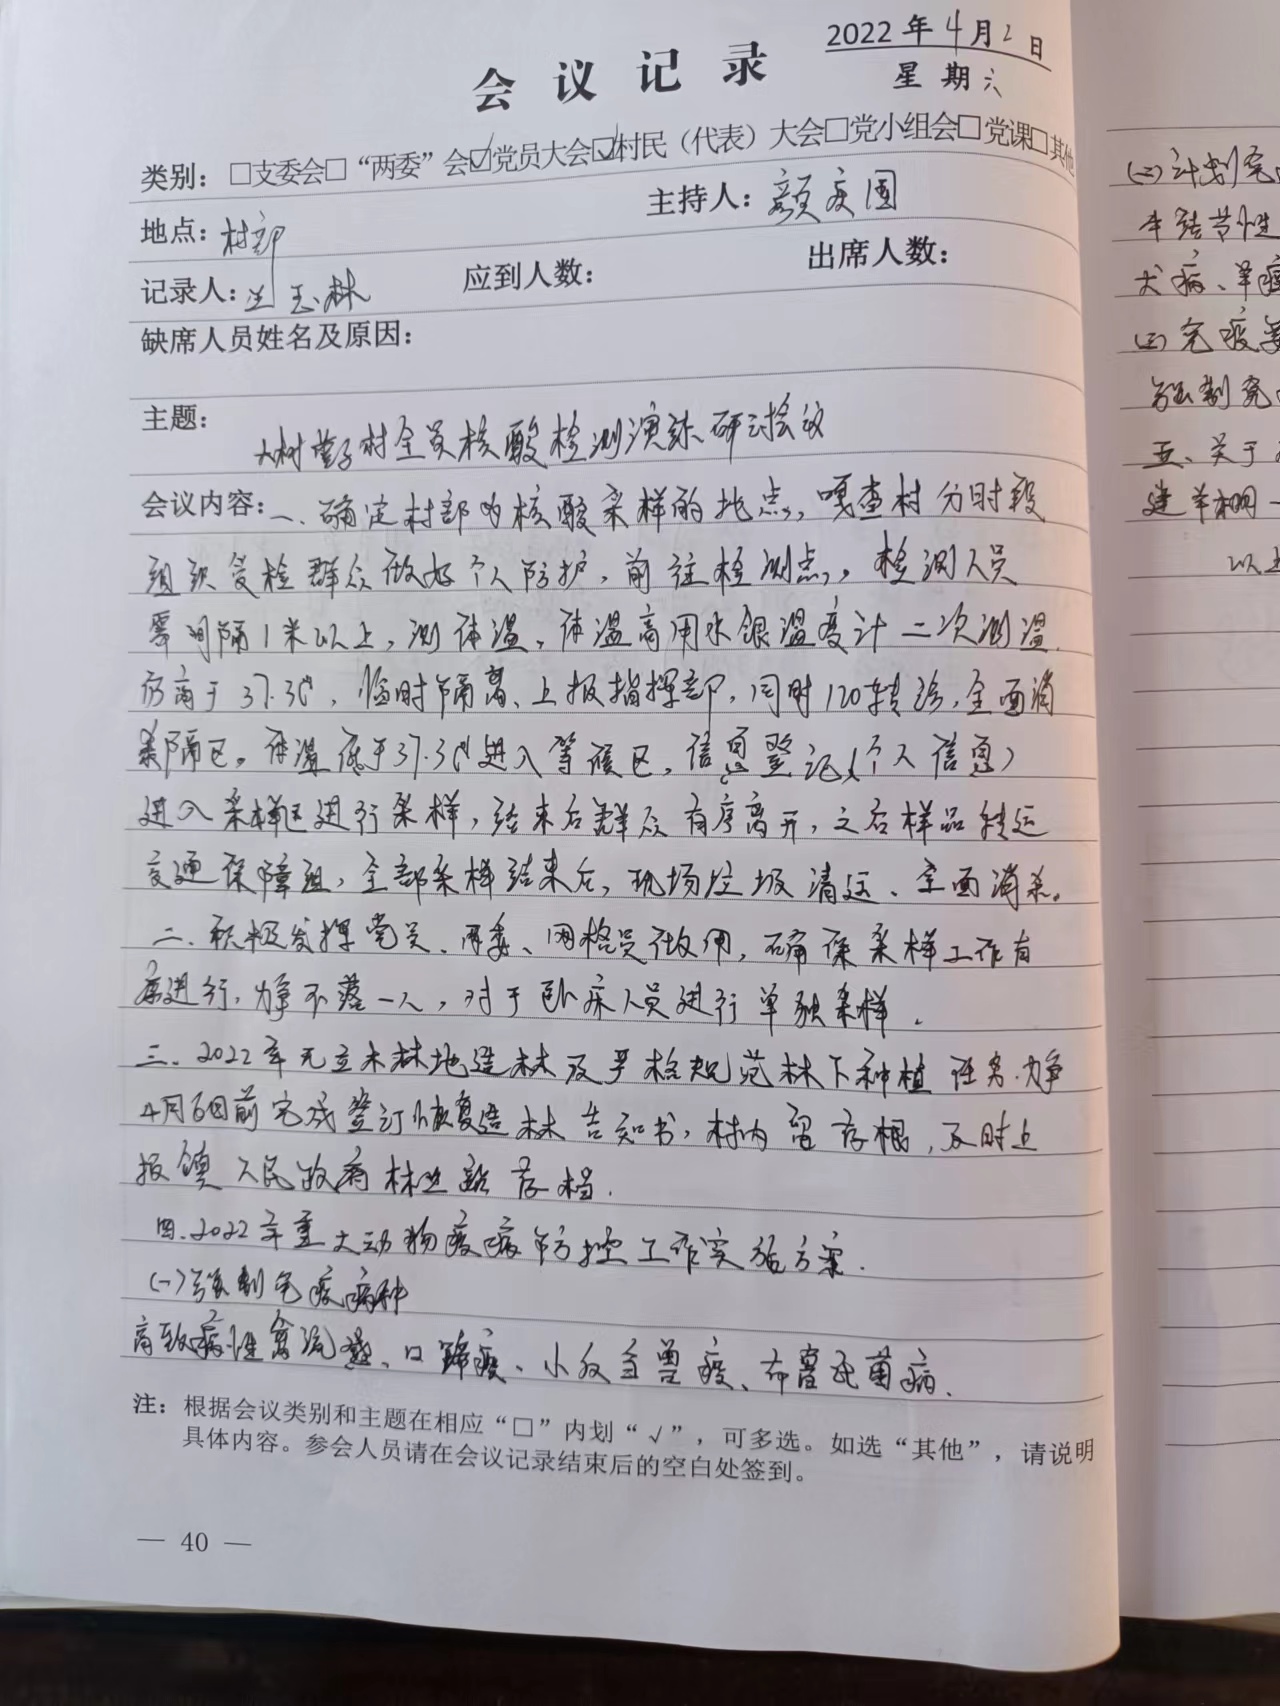 2022年4月2日
会议记录
星期六
类别：□支委会□“两委”会☑党员大会☑村民（代表）大会□党小组会□党课□其他
地点：村部
主持人：颜庆国
记录人：兰玉林
应到人数：
出席人数：
缺席人员姓名及原因：
主题：
大树营子村全员核酸检测演练研讨会议
会议内容：一、确定村部为核酸采样的地点，嘎查村分时段
组织受检群众做好个人防护，前往检测点，检测人员
需间隔1米以上，测体温，体温高用水银温度计二次测温
仍高于37.3℃，临时隔离、上报指挥部，同时120转诊，全面消
杀隔区。体温底于37.3℃进入等候区，信息登记（个人信息）
进入采样区进行采样，结束后群众有序离开，之后样品转运
交通保障组，全部采样结束后，现场垃圾清运、全面消杀。
二、积极发挥党员、两委、网格员作用，确保采样工作有
序进行，力争不落一人，对于卧床人员进行单独采样。
三、2022年无立木林地造林及严格规范林下种植任务，力争
4月6日前完成签订恢复造林告知书，村内留存根，及时上
报镇人民政府林业站存档.
四、2022年重大动物疫病防控工作实施方案.
(一)强制免疫病种
高致病性禽流感、口蹄疫、小反刍兽疫、布鲁氏菌病、
注：根据会议类别和主题在相应“□”内划“√”，可多选。如选“其他”，请说明
具体内容。参会人员请在会议记录结束后的空白处签到。
— 40 —
(二)计划免
牛结节性
犬病、羊
(三)免疫
强制免
五、关于
建羊棚一
以上